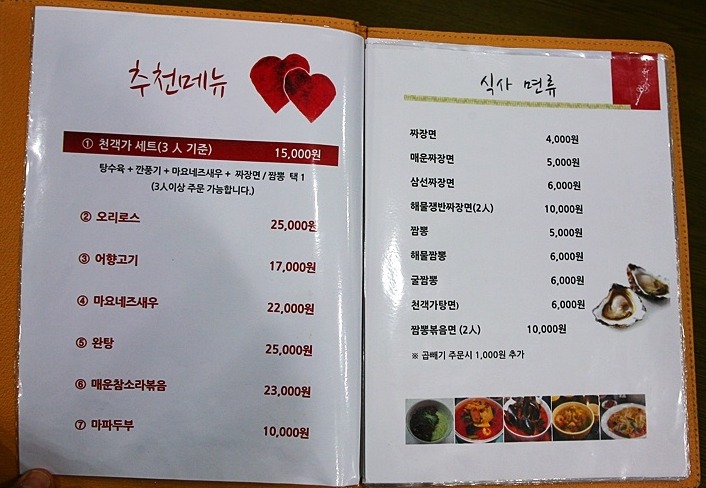 추천메뉴
① 천객가 세트(3 人 기준) 15,000원
탕수육 + 깐풍기 + 마요네즈새우 + 짜장면 / 짬뽕 택 1
(3人이상 주문 가능합니다.)
② 오리로스 25,000원
③ 어향고기 17,000원
④ 마요네즈새우 22,000원
⑤ 완탕 25,000원
⑥ 매운참소라볶음 23,000원
⑦ 마파두부 10,000원
식사 면류
짜장면 4,000원
매운짜장면 5,000원
삼선짜장면 6,000원
해물쟁반짜장면(2人) 10,000원
짬뽕 5,000원
해물짬뽕 6,000원
굴짬뽕 6,000원
천객가탕면) 6,000원
짬뽕볶음면 (2人) 10,000원
※ 곱빼기 주문시 1,000원 추가